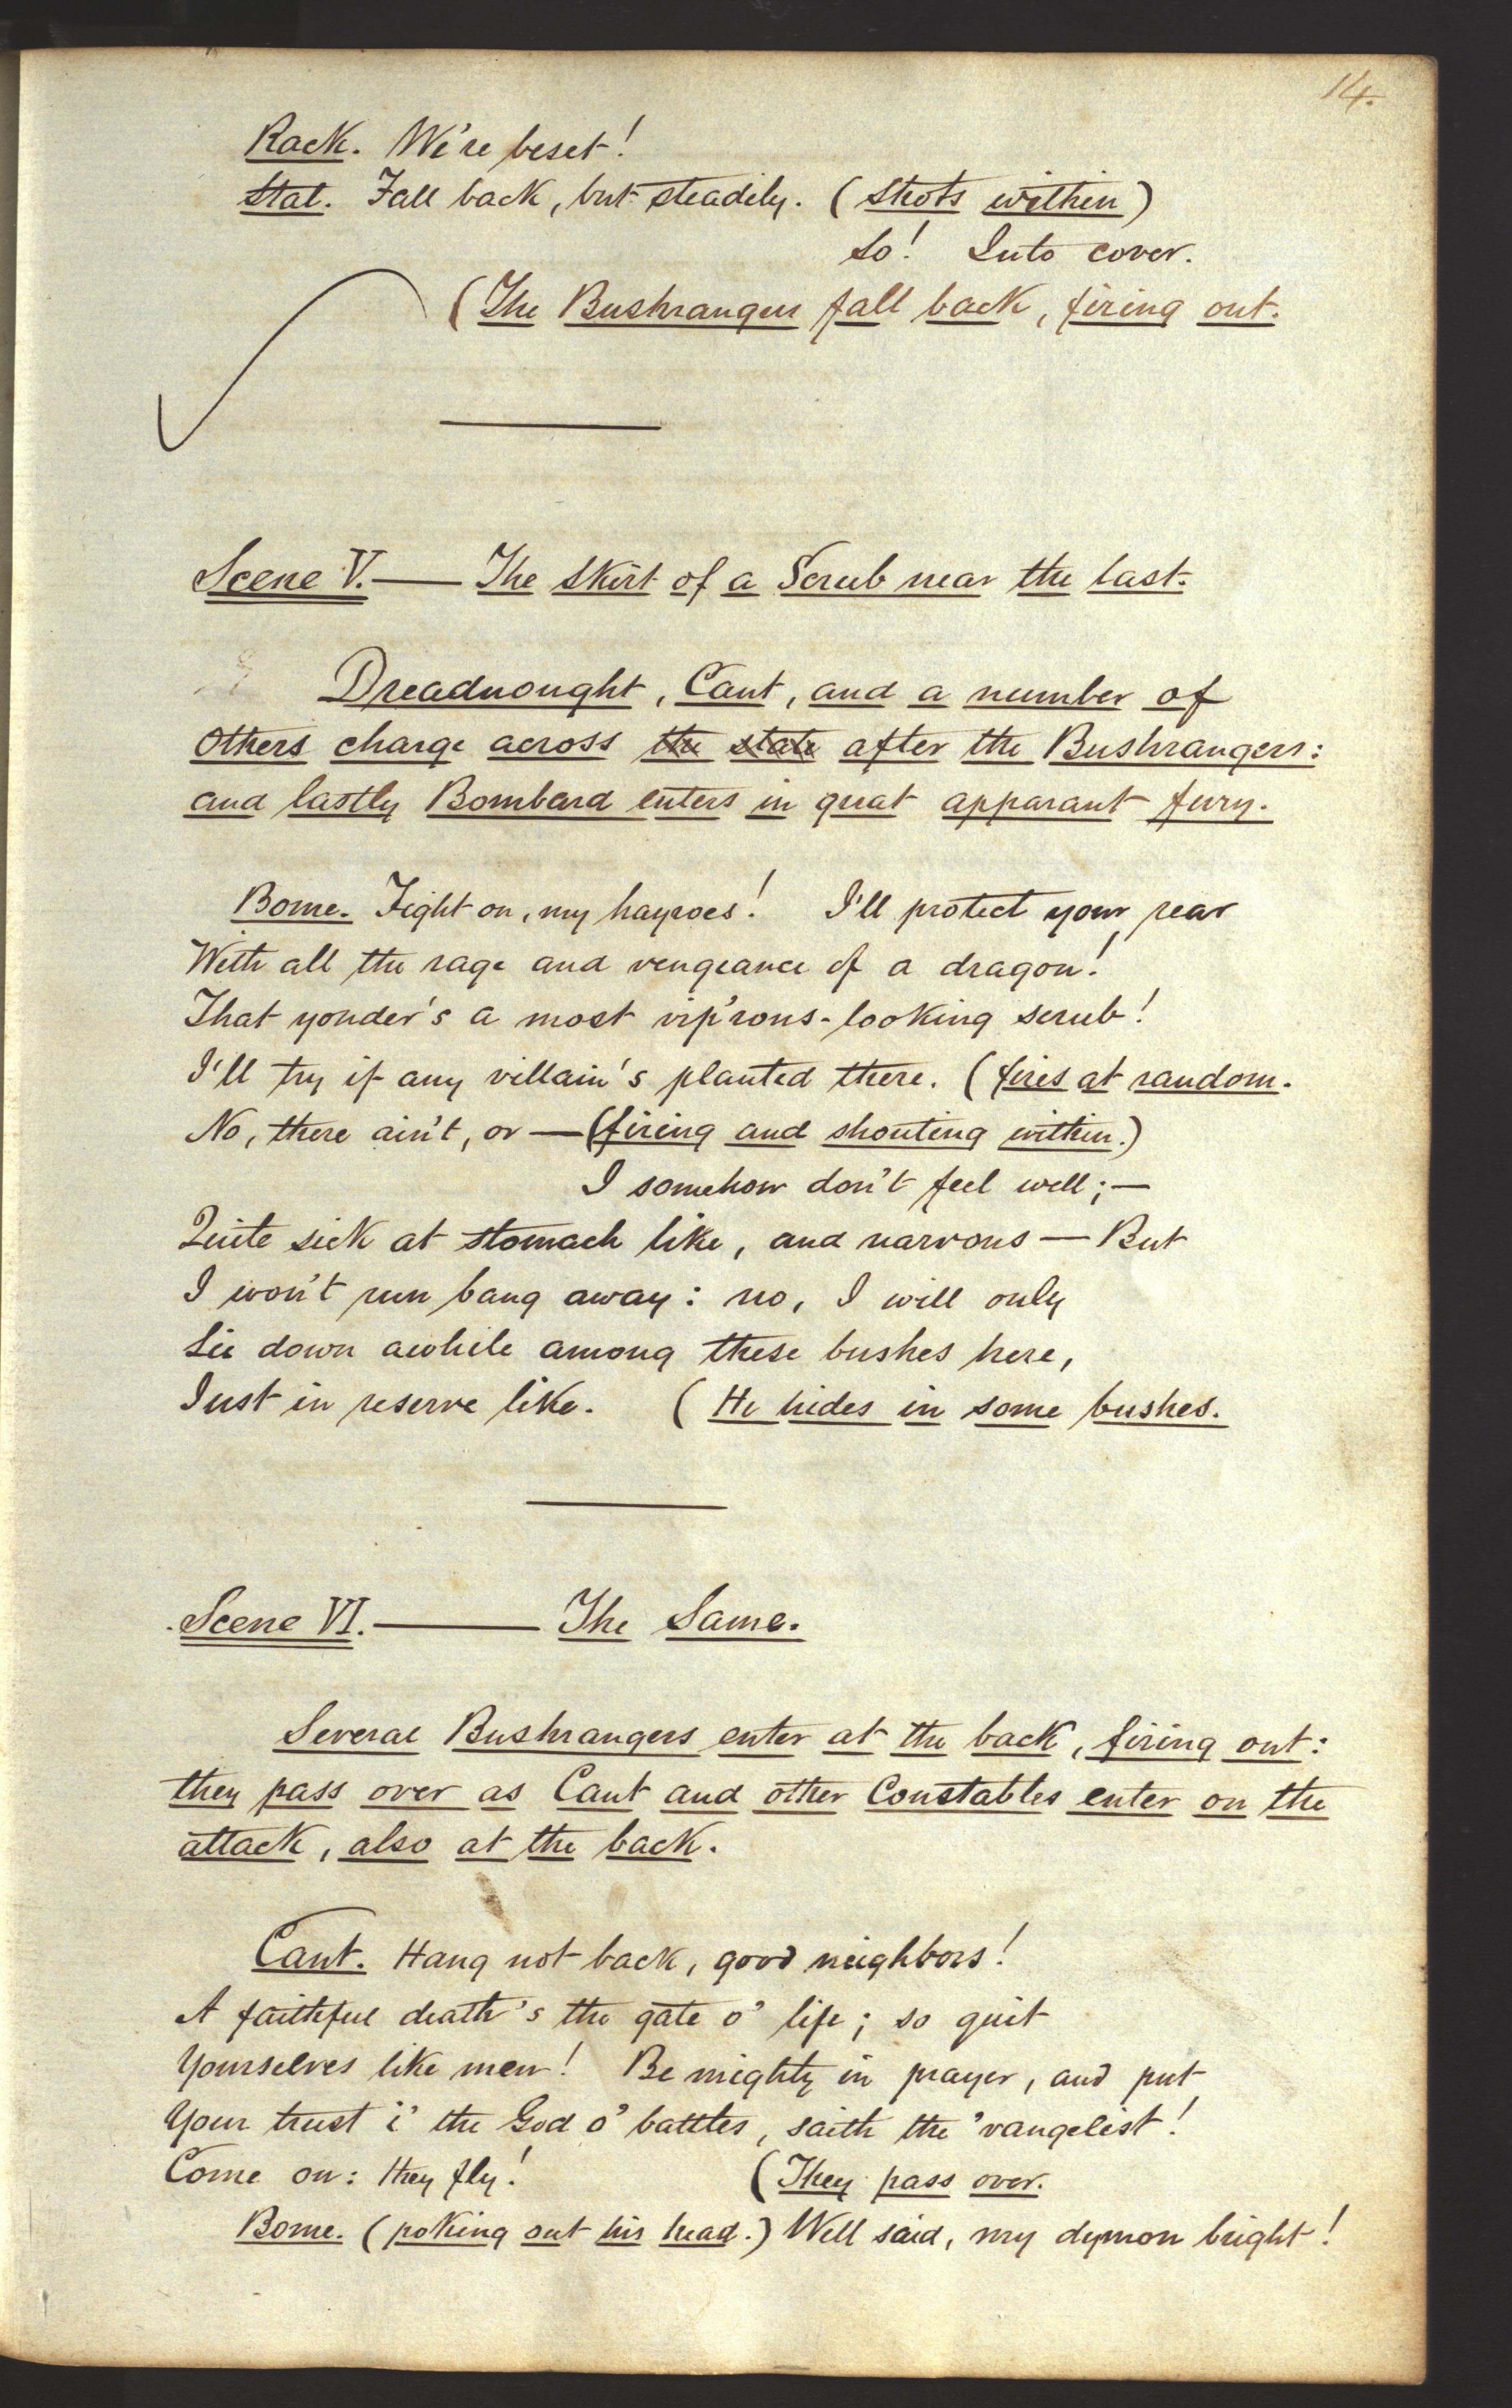 14.
Rack. We're beset!
Stal. Fall back, but steadily. (Shots within)
So! Into cover.
(The Bushrangers fall back, firing out.
Scene V. — The skirt of a Scrub near the last.
Dreadnought, Cant, and a number of
others charge across the state after the Bushrangers:
and lastly Bombard enters in great apparant fury.
Bome. Fight on, my hayroes! I'll protect your rear
With all the rage and vengeance of a dragon!
That yonder's a most vip'rous-looking scrub!
I'll try if any villain's planted there. (fires at random.
No, there ain't, or — (firing and shouting within.)
I somehow don't feel well; —
Quite sick at stomach like, and narvous — But
I won't run bang away: no, I will only
Lie down awhile among these bushes here,
Just in reserve like. (He hides in some bushes.
Scene VI. — The Same.
Several Bushrangers enter at the back, firing out:
they pass over as Cant and other Constables enter on the
attack, also at the back.
Cant. Hang not back, good neighbors!
A faithful death's the gate o' life; so quit
Yourselves like men! Be mighty in prayer, and put
Your trust i' the God o' battles, saith the 'vangelist!
Come on: they fly! (They pass over.
Bome. (poking out his head.) Well said, my dymon bright!